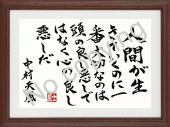 人間が生
きていくのに一
番大切なのは
頭の良し悪しで
はなく心の良し
悪しだ
中村天風